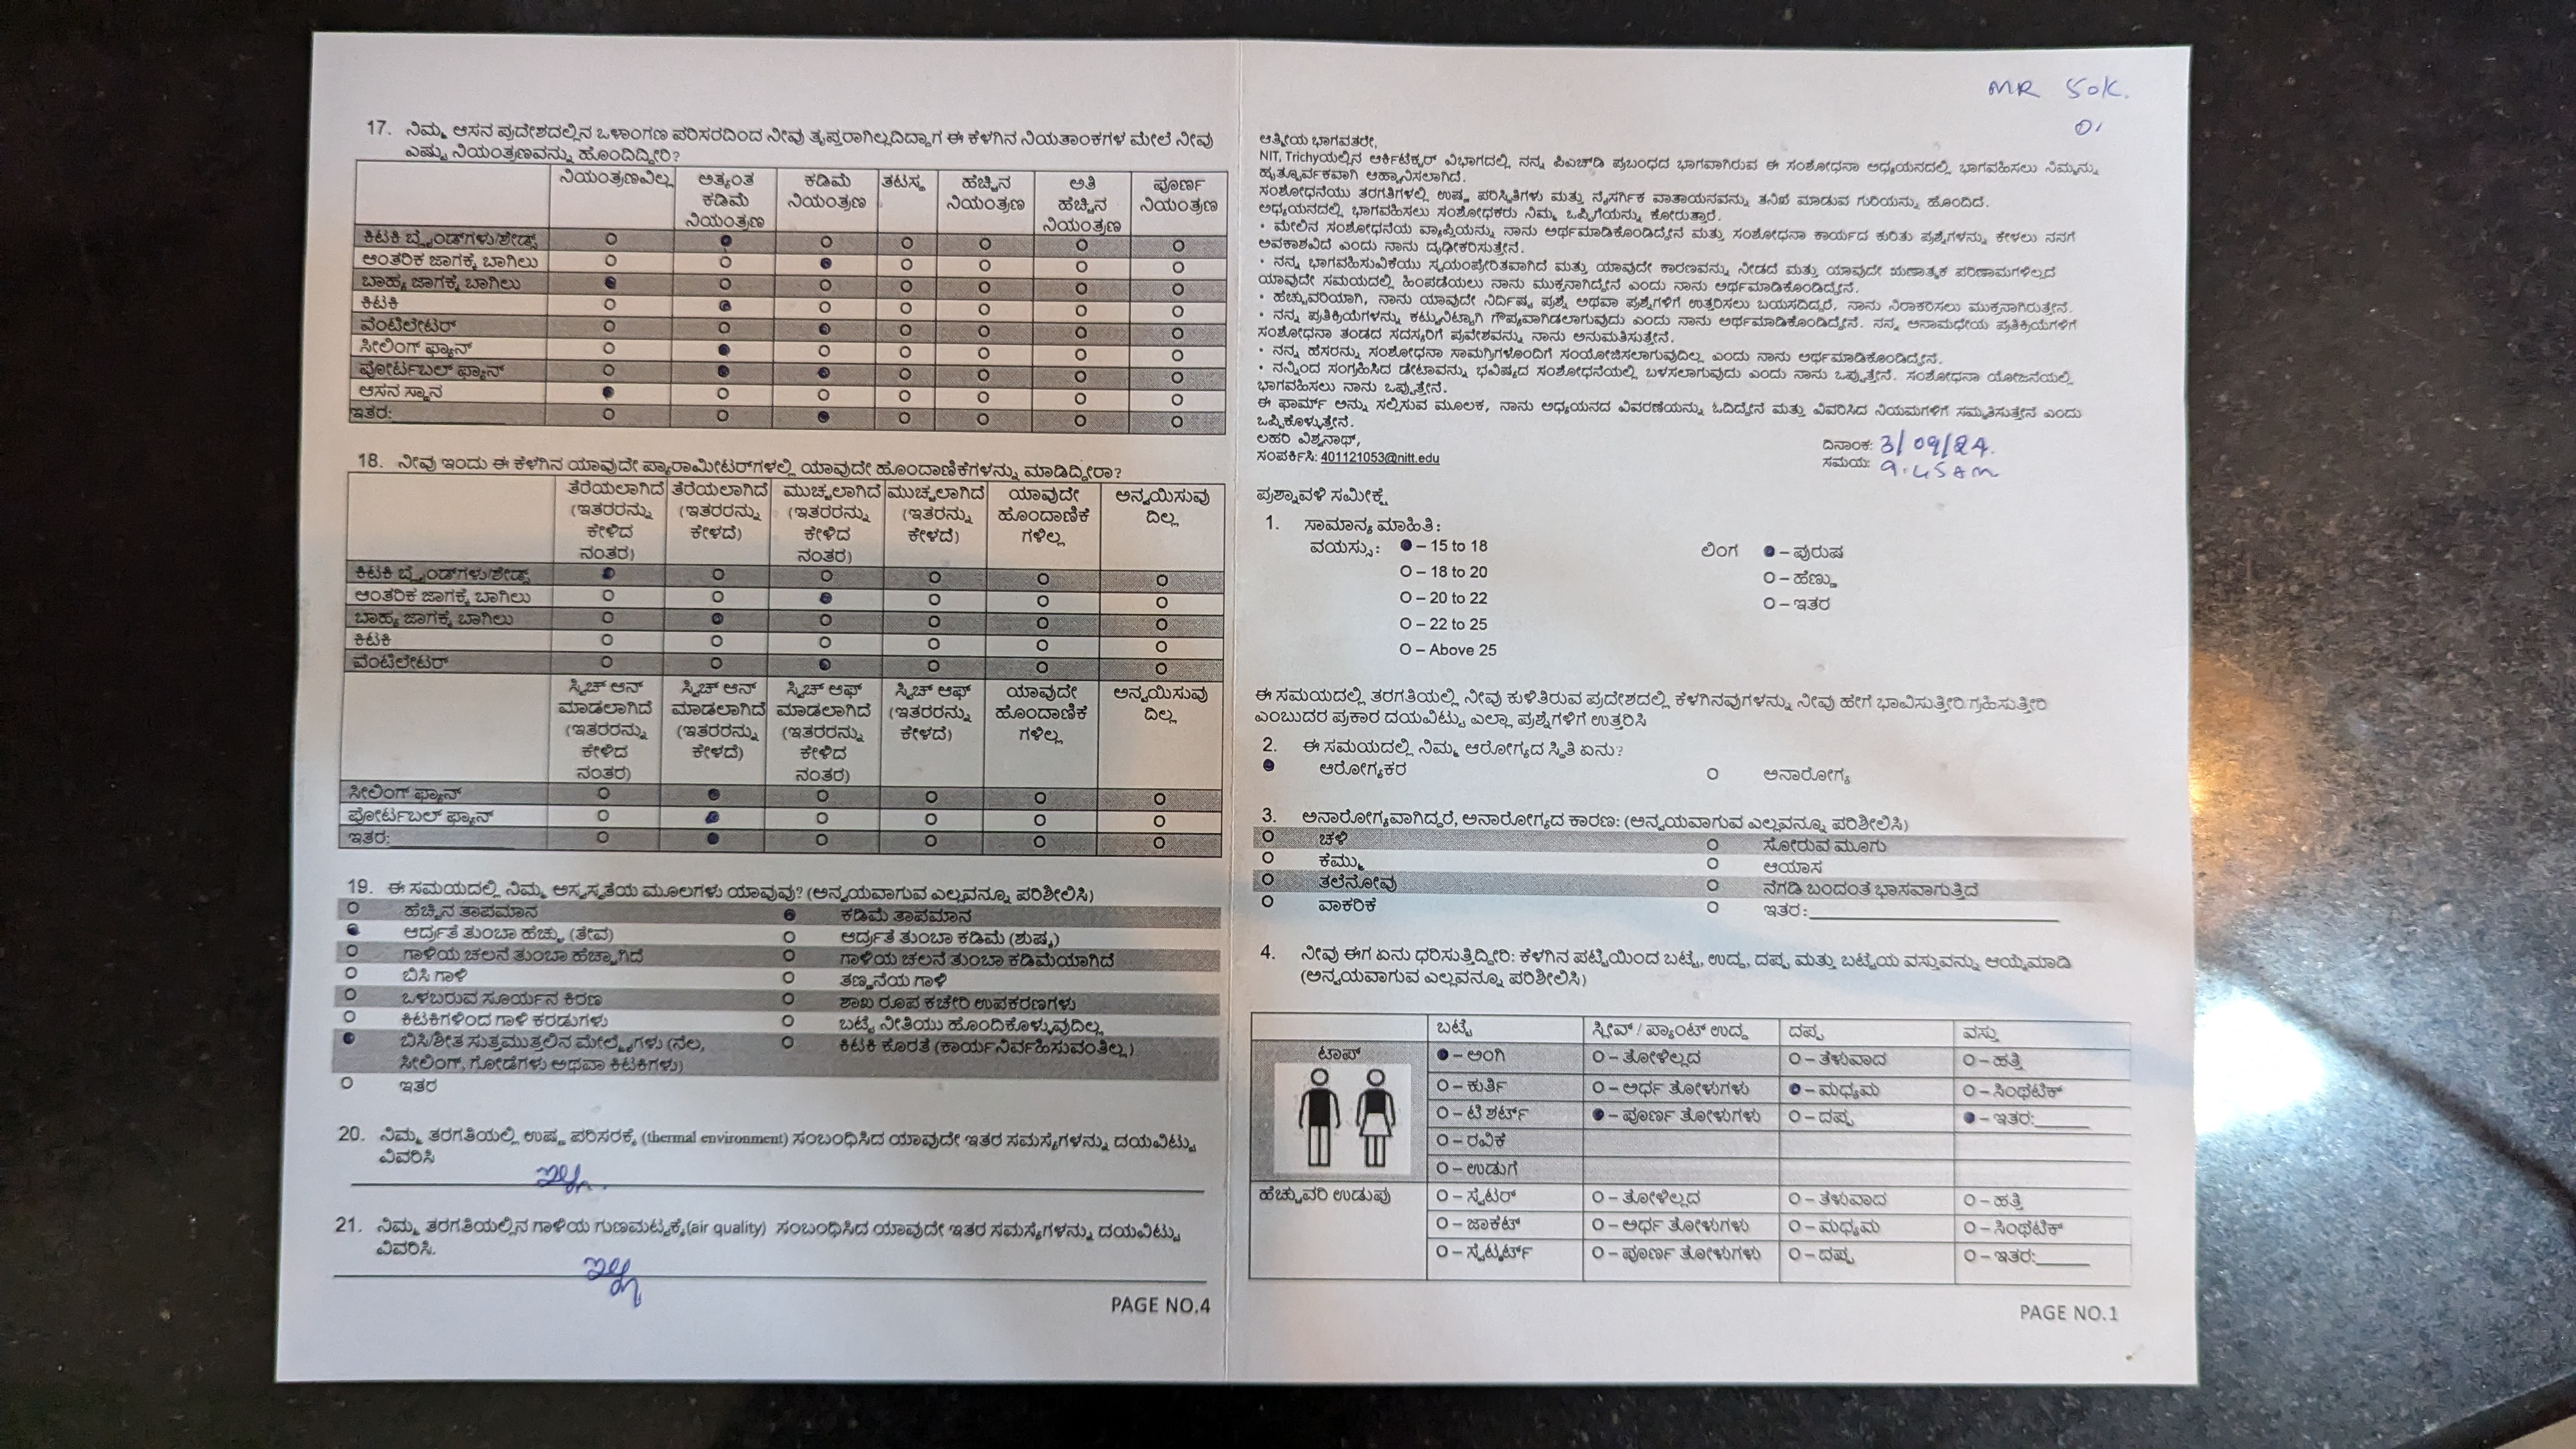 17. ನಿಮ್ಮ ಆಸನ ಪ್ರದೇಶದಲ್ಲಿನ ಒಳಾಂಗಣ ಪರಿಸರದಿಂದ ನೀವು ತೃಪ್ತರಾಗಿಲ್ಲದಿದ್ದಾಗ ಈ ಕೆಳಗಿನ ನಿಯತಾಂಕಗಳ ಮೇಲೆ ನೀವು
ಎಷ್ಟು ನಿಯಂತ್ರಣವನ್ನು ಹೊಂದಿದ್ದೀರಿ?
ನಿಯಂತ್ರಣವಿಲ್ಲ ಅತ್ಯಂತ ಕಡಿಮೆ ನಿಯಂತ್ರಣ ಕಡಿಮೆ ನಿಯಂತ್ರಣ ತಟಸ್ಥ ಹೆಚ್ಚಿನ ನಿಯಂತ್ರಣ ಅತಿ ಹೆಚ್ಚಿನ ನಿಯಂತ್ರಣ ಪೂರ್ಣ ನಿಯಂತ್ರಣ
ಕಿಟಕಿ ಬ್ಲೈಂಡ್‌ಗಳು/ಶೇಡ್ಸ್
ಆಂತರಿಕ ಜಾಗಕ್ಕೆ ಬಾಗಿಲು
ಬಾಹ್ಯ ಜಾಗಕ್ಕೆ ಬಾಗಿಲು
ಕಿಟಕಿ
ವೆಂಟಿಲೇಟರ್
ಸೀಲಿಂಗ್ ಫ್ಯಾನ್
ಪೋರ್ಟಬಲ್ ಫ್ಯಾನ್
ಆಸನ ಸ್ಥಾನ
ಇತರ:
18. ನೀವು ಇಂದು ಈ ಕೆಳಗಿನ ಯಾವುದೇ ಪ್ಯಾರಾಮೀಟರ್‌ಗಳಲ್ಲಿ ಯಾವುದೇ ಹೊಂದಾಣಿಕೆಗಳನ್ನು ಮಾಡಿದ್ದೀರಾ?
ತೆರೆಯಲಾಗಿದೆ (ಇತರರನ್ನು ಕೇಳಿದ ನಂತರ) ತೆರೆಯಲಾಗಿದೆ (ಇತರರನ್ನು ಕೇಳದೆ) ಮುಚ್ಚಲಾಗಿದೆ (ಇತರರನ್ನು ಕೇಳಿದ ನಂತರ) ಮುಚ್ಚಲಾಗಿದೆ (ಇತರನ್ನು ಕೇಳದೆ) ಯಾವುದೇ ಹೊಂದಾಣಿಕೆ ಗಳಿಲ್ಲ ಅನ್ವಯಿಸುವು ದಿಲ್ಲ
ಕಿಟಕಿ ಬ್ಲೈಂಡ್‌ಗಳು/ಶೇಡ್ಸ್
ಆಂತರಿಕ ಜಾಗಕ್ಕೆ ಬಾಗಿಲು
ಬಾಹ್ಯ ಜಾಗಕ್ಕೆ ಬಾಗಿಲು
ಕಿಟಕಿ
ವೆಂಟಿಲೇಟರ್
ಸ್ವಿಚ್ ಆನ್ ಮಾಡಲಾಗಿದೆ (ಇತರರನ್ನು ಕೇಳಿದ ನಂತರ) ಸ್ವಿಚ್ ಆನ್ ಮಾಡಲಾಗಿದೆ (ಇತರರನ್ನು ಕೇಳದೆ) ಸ್ವಿಚ್ ಆಫ್ ಮಾಡಲಾಗಿದೆ (ಇತರರನ್ನು ಕೇಳಿದ ನಂತರ) ಸ್ವಿಚ್ ಆಫ್ (ಇತರರನ್ನು ಕೇಳದೆ) ಯಾವುದೇ ಹೊಂದಾಣಿಕೆ ಗಳಿಲ್ಲ ಅನ್ವಯಿಸುವು ದಿಲ್ಲ
ಸೀಲಿಂಗ್ ಫ್ಯಾನ್
ಪೋರ್ಟಬಲ್ ಫ್ಯಾನ್
ಇತರ:
19. ಈ ಸಮಯದಲ್ಲಿ ನಿಮ್ಮ ಅಸ್ವಸ್ಥತೆಯ ಮೂಲಗಳು ಯಾವುವು? (ಅನ್ವಯವಾಗುವ ಎಲ್ಲವನ್ನೂ ಪರಿಶೀಲಿಸಿ)
ಹೆಚ್ಚಿನ ತಾಪಮಾನ ಕಡಿಮೆ ತಾಪಮಾನ
ಆರ್ದ್ರತೆ ತುಂಬಾ ಹೆಚ್ಚು (ತೇವ) ಆರ್ದ್ರತೆ ತುಂಬಾ ಕಡಿಮೆ (ಶುಷ್ಕ)
ಗಾಳಿಯ ಚಲನೆ ತುಂಬಾ ಹೆಚ್ಚಾಗಿದೆ ಗಾಳಿಯ ಚಲನೆ ತುಂಬಾ ಕಡಿಮೆಯಾಗಿದೆ
ಬಿಸಿ ಗಾಳಿ ತಣ್ಣನೆಯ ಗಾಳಿ
ಒಳಬರುವ ಸೂರ್ಯನ ಕಿರಣ ಶಾಖ ರೂಪ ಕಚೇರಿ ಉಪಕರಣಗಳು
ಕಿಟಕಿಗಳಿಂದ ಗಾಳಿ ಕರಡುಗಳು ಬಟ್ಟೆ ನೀತಿಯು ಹೊಂದಿಕೊಳ್ಳುವುದಿಲ್ಲ
ಬಿಸಿ/ಶೀತ ಸುತ್ತಮುತ್ತಲಿನ ಮೇಲ್ಮೈಗಳು (ನೆಲ, ಕಿಟಕಿ ಕೊರತೆ (ಕಾರ್ಯನಿರ್ವಹಿಸುವಂತಿಲ್ಲ)
ಸೀಲಿಂಗ್, ಗೋಡೆಗಳು ಅಥವಾ ಕಿಟಕಿಗಳು)
ಇತರ
20. ನಿಮ್ಮ ತರಗತಿಯಲ್ಲಿ ಉಷ್ಣ ಪರಿಸರಕ್ಕೆ (thermal environment) ಸಂಬಂಧಿಸಿದ ಯಾವುದೇ ಇತರ ಸಮಸ್ಯೆಗಳನ್ನು ದಯವಿಟ್ಟು
ವಿವರಿಸಿ
ಇಲ್ಲ
21. ನಿಮ್ಮ ತರಗತಿಯಲ್ಲಿನ ಗಾಳಿಯ ಗುಣಮಟ್ಟಕ್ಕೆ(air quality) ಸಂಬಂಧಿಸಿದ ಯಾವುದೇ ಇತರ ಸಮಸ್ಯೆಗಳನ್ನು ದಯವಿಟ್ಟು
ವಿವರಿಸಿ.
ಇಲ್ಲ
PAGE NO.4
MR 50K.
01
ಆತ್ಮೀಯ ಭಾಗವತರೇ,
NIT, Trichyಯಲ್ಲಿನ ಆರ್ಕಿಟೆಕ್ಚರ್ ವಿಭಾಗದಲ್ಲಿ ನನ್ನ ಪಿಎಚ್‌ಡಿ ಪ್ರಬಂಧದ ಭಾಗವಾಗಿರುವ ಈ ಸಂಶೋಧನಾ ಅಧ್ಯಯನದಲ್ಲಿ ಭಾಗವಹಿಸಲು ನಿಮ್ಮನ್ನು
ಹೃತ್ಪೂರ್ವಕವಾಗಿ ಆಹ್ವಾನಿಸಲಾಗಿದೆ.
ಸಂಶೋಧನೆಯು ತರಗತಿಗಳಲ್ಲಿ ಉಷ್ಣ ಪರಿಸ್ಥಿತಿಗಳು ಮತ್ತು ನೈಸರ್ಗಿಕ ವಾತಾಯನವನ್ನು ತನಿಖೆ ಮಾಡುವ ಗುರಿಯನ್ನು ಹೊಂದಿದೆ.
ಅಧ್ಯಯನದಲ್ಲಿ ಭಾಗವಹಿಸಲು ಸಂಶೋಧಕರು ನಿಮ್ಮ ಒಪ್ಪಿಗೆಯನ್ನು ಕೋರುತ್ತಾರೆ.
• ಮೇಲಿನ ಸಂಶೋಧನೆಯ ವ್ಯಾಪ್ತಿಯನ್ನು ನಾನು ಅರ್ಥಮಾಡಿಕೊಂಡಿದ್ದೇನೆ ಮತ್ತು ಸಂಶೋಧನಾ ಕಾರ್ಯದ ಕುರಿತು ಪ್ರಶ್ನೆಗಳನ್ನು ಕೇಳಲು ನನಗೆ
ಅವಕಾಶವಿದೆ ಎಂದು ನಾನು ದೃಢೀಕರಿಸುತ್ತೇನೆ.
• ನನ್ನ ಭಾಗವಹಿಸುವಿಕೆಯು ಸ್ವಯಂಪ್ರೇರಿತವಾಗಿದೆ ಮತ್ತು ಯಾವುದೇ ಕಾರಣವನ್ನು ನೀಡದೆ ಮತ್ತು ಯಾವುದೇ ಋಣಾತ್ಮಕ ಪರಿಣಾಮಗಳಿಲ್ಲದೆ
ಯಾವುದೇ ಸಮಯದಲ್ಲಿ ಹಿಂಪಡೆಯಲು ನಾನು ಮುಕ್ತನಾಗಿದ್ದೇನೆ ಎಂದು ನಾನು ಅರ್ಥಮಾಡಿಕೊಂಡಿದ್ದೇನೆ.
• ಹೆಚ್ಚುವರಿಯಾಗಿ, ನಾನು ಯಾವುದೇ ನಿರ್ದಿಷ್ಟ ಪ್ರಶ್ನೆ ಅಥವಾ ಪ್ರಶ್ನೆಗಳಿಗೆ ಉತ್ತರಿಸಲು ಬಯಸದಿದ್ದರೆ, ನಾನು ನಿರಾಕರಿಸಲು ಮುಕ್ತನಾಗಿರುತ್ತೇನೆ.
• ನನ್ನ ಪ್ರತಿಕ್ರಿಯೆಗಳನ್ನು ಕಟ್ಟುನಿಟ್ಟಾಗಿ ಗೌಪ್ಯವಾಗಿಡಲಾಗುವುದು ಎಂದು ನಾನು ಅರ್ಥಮಾಡಿಕೊಂಡಿದ್ದೇನೆ. ನನ್ನ ಅನಾಮಧೇಯ ಪ್ರತಿಕ್ರಿಯೆಗಳಿಗೆ
ಸಂಶೋಧನಾ ತಂಡದ ಸದಸ್ಯರಿಗೆ ಪ್ರವೇಶವನ್ನು ನಾನು ಅನುಮತಿಸುತ್ತೇನೆ.
• ನನ್ನ ಹೆಸರನ್ನು ಸಂಶೋಧನಾ ಸಾಮಗ್ರಿಗಳೊಂದಿಗೆ ಸಂಯೋಜಿಸಲಾಗುವುದಿಲ್ಲ ಎಂದು ನಾನು ಅರ್ಥಮಾಡಿಕೊಂಡಿದ್ದೇನೆ.
• ನನ್ನಿಂದ ಸಂಗ್ರಹಿಸಿದ ಡೇಟಾವನ್ನು ಭವಿಷ್ಯದ ಸಂಶೋಧನೆಯಲ್ಲಿ ಬಳಸಲಾಗುವುದು ಎಂದು ನಾನು ಒಪ್ಪುತ್ತೇನೆ. ಸಂಶೋಧನಾ ಯೋಜನೆಯಲ್ಲಿ
ಭಾಗವಹಿಸಲು ನಾನು ಒಪ್ಪುತ್ತೇನೆ.
ಈ ಫಾರ್ಮ್ ಅನ್ನು ಸಲ್ಲಿಸುವ ಮೂಲಕ, ನಾನು ಅಧ್ಯಯನದ ವಿವರಣೆಯನ್ನು ಓದಿದ್ದೇನೆ ಮತ್ತು ವಿವರಿಸಿದ ನಿಯಮಗಳಿಗೆ ಸಮ್ಮತಿಸುತ್ತೇನೆ ಎಂದು
ಒಪ್ಪಿಕೊಳ್ಳುತ್ತೇನೆ.
ಲಹರಿ ವಿಶ್ವನಾಥ್,
ಸಂಪರ್ಕಿಸಿ: 401121053@nitt.edu
ದಿನಾಂಕ: 3/09/24.
ಸಮಯ: 9.45 am
ಪ್ರಶ್ನಾವಳಿ ಸಮೀಕ್ಷೆ
1. ಸಾಮಾನ್ಯ ಮಾಹಿತಿ:
ವಯಸ್ಸು: – 15 to 18 ಲಿಂಗ – ಪುರುಷ
O – 18 to 20 O – ಹೆಣ್ಣು
O – 20 to 22 O – ಇತರ
O – 22 to 25
O – Above 25
ಈ ಸಮಯದಲ್ಲಿ ತರಗತಿಯಲ್ಲಿ ನೀವು ಕುಳಿತಿರುವ ಪ್ರದೇಶದಲ್ಲಿ ಕೆಳಗಿನವುಗಳನ್ನು ನೀವು ಹೇಗೆ ಭಾವಿಸುತ್ತೀರಿ/ಗ್ರಹಿಸುತ್ತೀರಿ
ಎಂಬುದರ ಪ್ರಕಾರ ದಯವಿಟ್ಟು ಎಲ್ಲಾ ಪ್ರಶ್ನೆಗಳಿಗೆ ಉತ್ತರಿಸಿ
2. ಈ ಸಮಯದಲ್ಲಿ ನಿಮ್ಮ ಆರೋಗ್ಯದ ಸ್ಥಿತಿ ಏನು?
ಆರೋಗ್ಯಕರ ಅನಾರೋಗ್ಯ
3. ಅನಾರೋಗ್ಯವಾಗಿದ್ದರೆ, ಅನಾರೋಗ್ಯದ ಕಾರಣ: (ಅನ್ವಯವಾಗುವ ಎಲ್ಲವನ್ನೂ ಪರಿಶೀಲಿಸಿ)
ಚಳಿ ಸೋರುವ ಮೂಗು
ಕೆಮ್ಮು ಆಯಾಸ
ತಲೆನೋವು ನೆಗಡಿ ಬಂದಂತೆ ಭಾಸವಾಗುತ್ತಿದೆ
ವಾಕರಿಕೆ ಇತರ:
4. ನೀವು ಈಗ ಏನು ಧರಿಸುತ್ತಿದ್ದೀರಿ: ಕೆಳಗಿನ ಪಟ್ಟಿಯಿಂದ ಬಟ್ಟೆ, ಉದ್ದ, ದಪ್ಪ ಮತ್ತು ಬಟ್ಟೆಯ ವಸ್ತುವನ್ನು ಆಯ್ಕೆಮಾಡಿ
(ಅನ್ವಯವಾಗುವ ಎಲ್ಲವನ್ನೂ ಪರಿಶೀಲಿಸಿ)
ಬಟ್ಟೆ ಸ್ಲೀವ್ / ಪ್ಯಾಂಟ್ ಉದ್ದ ದಪ್ಪ ವಸ್ತು
ಟಾಪ್ – ಅಂಗಿ O – ತೋಳಿಲ್ಲದ O – ತೆಳುವಾದ O – ಹತ್ತಿ
O – ಕುರ್ತಿ O – ಅರ್ಧ ತೋಳುಗಳು – ಮಧ್ಯಮ O – ಸಿಂಥಟಿಕ್
O – ಟಿ ಶರ್ಟ್ – ಪೂರ್ಣ ತೋಳುಗಳು O – ದಪ್ಪ – ಇತರ:
O – ರವಿಕೆ
O – ಉಡುಗೆ
ಹೆಚ್ಚುವರಿ ಉಡುಪು O – ಸ್ವೆಟರ್ O – ತೋಳಿಲ್ಲದ O – ತೆಳುವಾದ O – ಹತ್ತಿ
O – ಜಾಕೆಟ್ O – ಅರ್ಧ ತೋಳುಗಳು O – ಮಧ್ಯಮ O – ಸಿಂಥಟಿಕ್
O – ಸ್ವೆಟ್ಶರ್ಟ್ O – ಪೂರ್ಣ ತೋಳುಗಳು O – ದಪ್ಪ O – ಇತರ:
PAGE NO.1